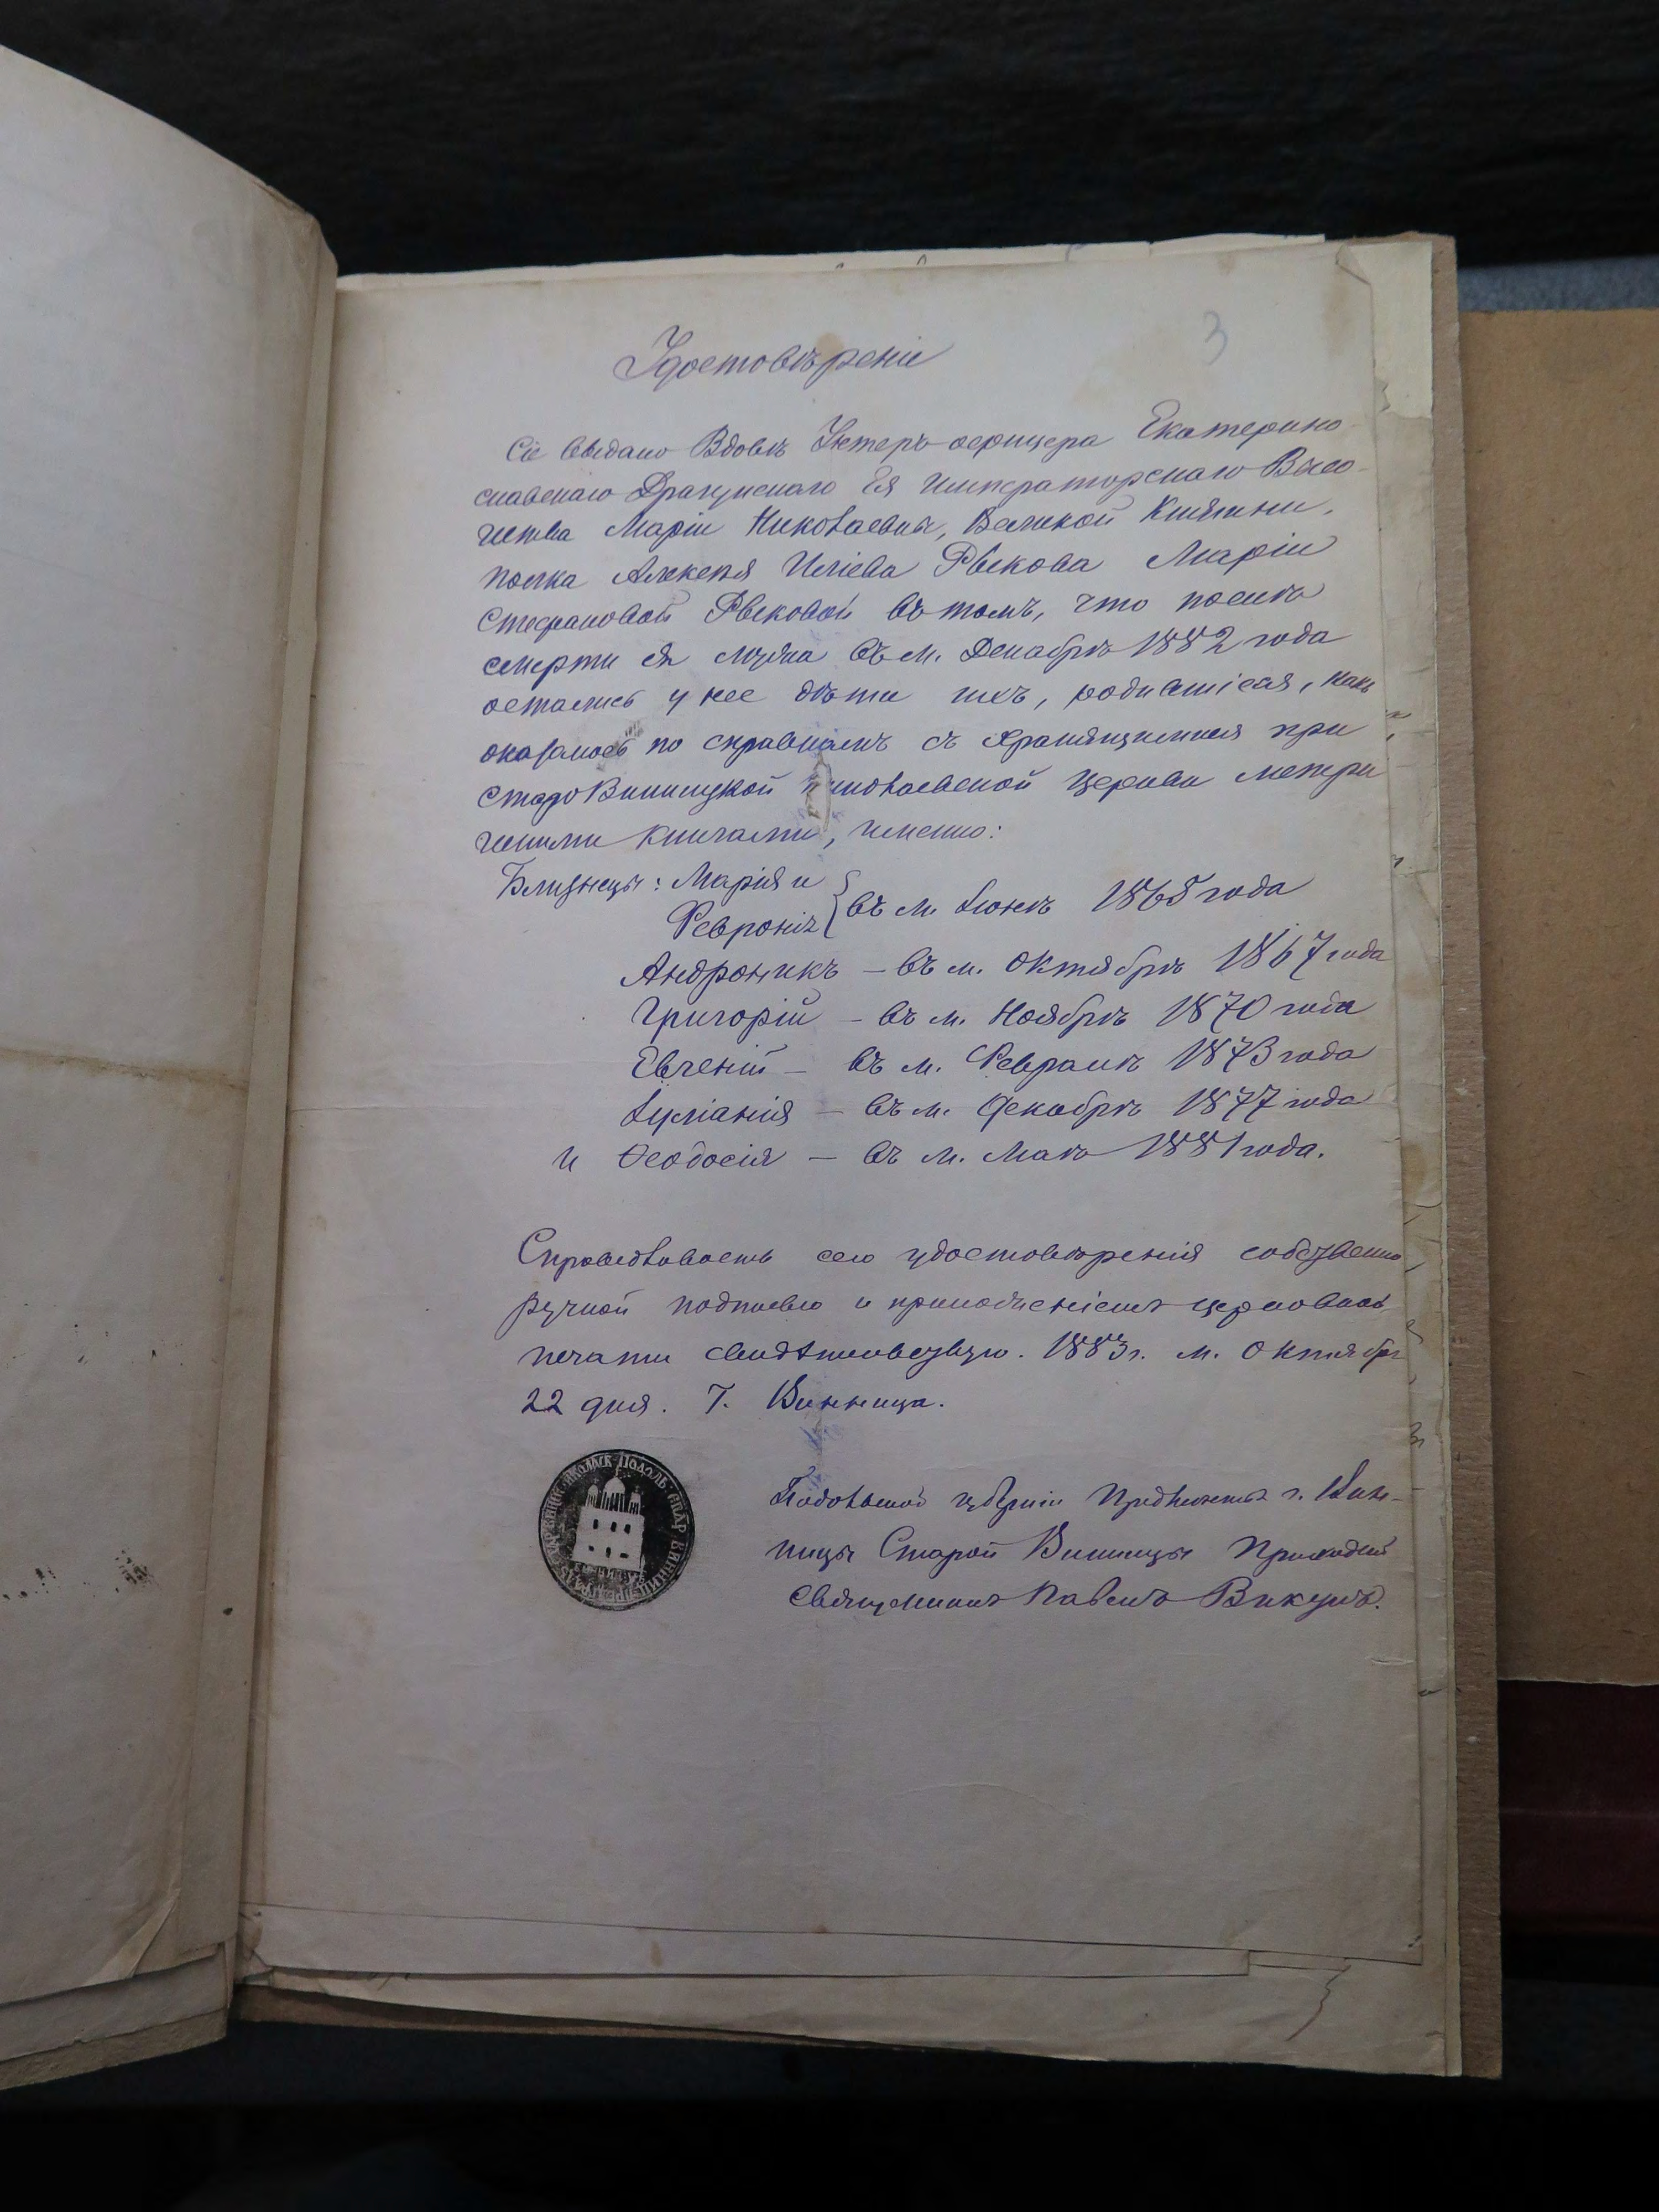 3
Удостовѣреніе
Сіе выдано Вдовѣ Унтеръ-офицера Екатерино-
славскаго Драгунскаго Ея Императорскаго Высо-
чества Маріи Николаевны, Великой Княжны,
полка Алексѣя Иліева Рыкова Маріи
Стефановой Рыковой въ томъ, что послѣ
смерти ея мужа въ м. Декабрѣ 1882 года
остались у нее дѣти ихъ, родившіеся, какъ
оказалось по справкамъ съ хранящимися при
Старо Винницкой Николаевской Церкви метри
чными книгами, именно:
Близнецы: Марія и
Февронія } въ м. Іюнѣ 1865 года
Андроникъ – въ м. Октябрѣ 1867 года
Григорій – въ м. Ноябрѣ 1870 года
Евгеній – въ м. Февралѣ 1873 года
Іуліанія – въ м. Декабрѣ 1877 года
и Ѳеодосія – въ м. Маѣ 1881 года.
Справедливость сего удостовѣренія собственно
ручной подписью и приложеніемъ церковной
печати свидѣтельствую. 1883 г. м. Октября
22 дня. Г. Винница.
Подольской губерніи Предмѣстья г. Вин-
ницы Старой Винницы Приходскій
Священникъ Павелъ Викулъ.